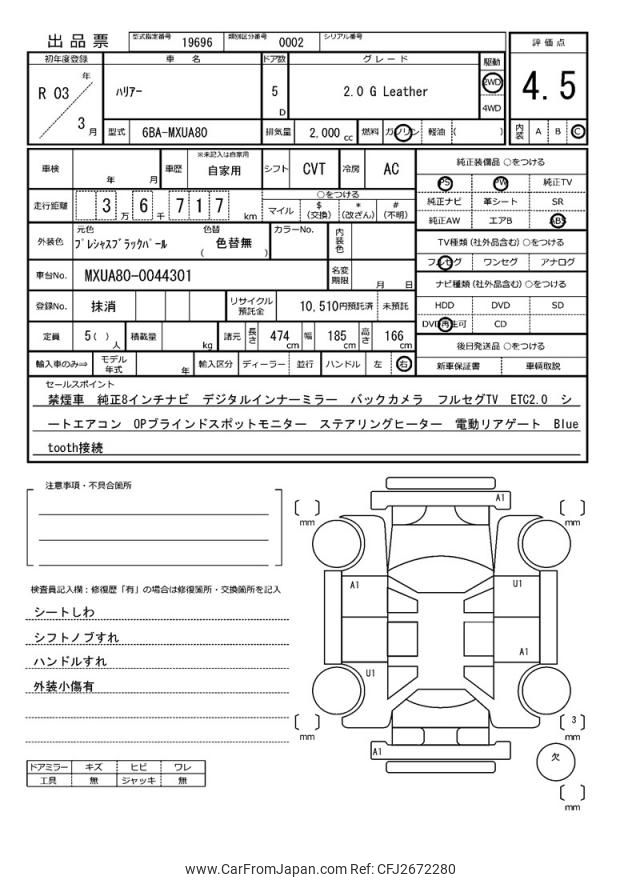 出品票 型式指定番号 19696 類別区分番号 0002 シリアル番号
評価点
4.5
内装 A B C
初年度登録 車名 ドア数 グレード 駆動
R 03 年 3 月 ハリアー 5 D 2.0 G Leather 2WD 4WD
型式 6BA-MXUA80 排気量 2,000 cc 燃料 ガソリン 軽油 ( )
車検 年 月 車歴 ※未記入は自家用 自家用 シフト CVT 冷房 AC
走行距離 3 万 6 千 7 1 7 km ○をつける
マイル $(交換) *(改ざん) #(不明)
外装色 元色 プレシャスブラックパール 色替 ( 色替無 ) カラーNo. 内装色
車台No. MXUA80-0044301 名変期限 月 日
登録No. 抹消 リサイクル預託金 10,510円預託済 未預託
定員 5( )人 積載量 kg 諸元 長さ 474 cm 幅 185 cm 高さ 166 cm
輸入車のみ⇒ モデル年式 年 輸入区分 ディーラー 並行 ハンドル 左 右
純正装備品 ○をつける
PS PW 純正TV
純正ナビ 革シート SR
純正AW エアB ABS
TV種類 (社外品含む) ○をつける
フルセグ ワンセグ アナログ
ナビ種類 (社外品含む) ○をつける
HDD DVD SD
DVD再生可 CD
後日発送品 ○をつける
新車保証書 車輌取説
セールスポイント
禁煙車 純正8インチナビ デジタルインナーミラー バックカメラ フルセグTV ETC2.0 シ
ートエアコン OPブラインドスポットモニター ステアリングヒーター 電動リアゲート Blue
tooth接続
注意事項・不具合箇所
検査員記入欄:修復歴「有」の場合は修復箇所・交換箇所を記入
シートしわ
シフトノブすれ
ハンドルすれ
外装小傷有
ドアミラー キズ ヒビ ワレ
工具 無 ジャッキ 無
A1
[ ] mm
[ ] mm
A1
U1
A1
U1
[ ] mm
[ 3 ] mm
A1
欠
[ ] mm
www.CarFromJapan.com Ref: CFJ2672280